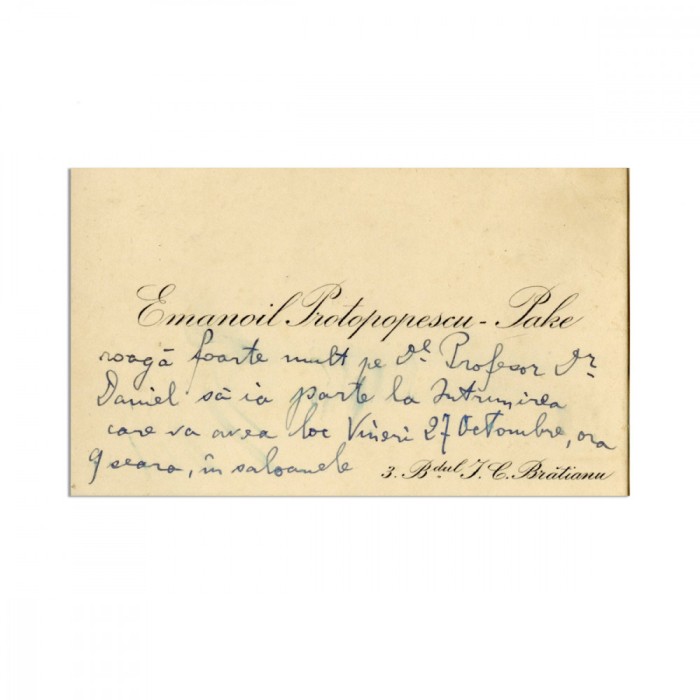 Emanoil Protopopescu - Pake
roagă foarte mult pe Dl Profesor Dr
Daniel să ia parte la Intrunirea
care va avea loc Vineri 27 Octombre, ora
9 seara, în saloanele
3. Bdul I. C. Brătianu